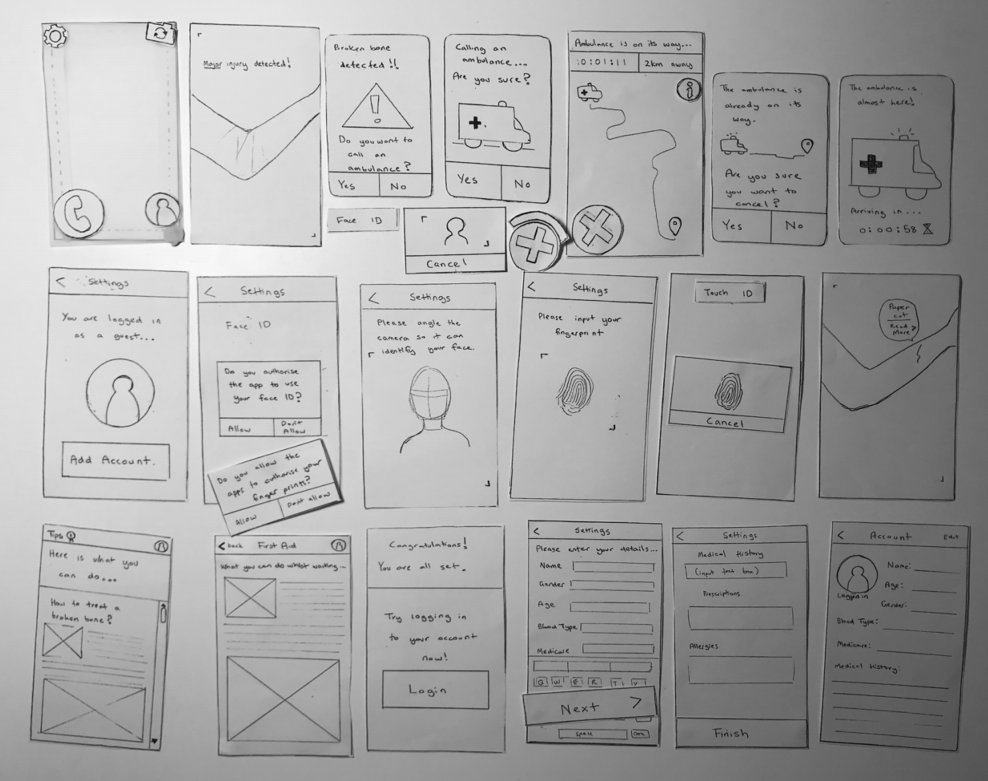 Major injury detected!
Broken bone
detected!!
!
Do you want to
call an
ambulance?
Yes
No
Calling an
ambulance...
Are you sure?
Yes
No
Ambulance is on its way...
10:01:11
2km away
i
The ambulance is
already on its
way.
Are you sure
you want to
cancel?
Yes
No
The ambulance is
almost here!
Arriving in...
0:00:58
Face ID
Cancel
< Settings
You are logged in
as a guest...
Add Account.
< Settings
Face ID
Do you authorise
the app to use
your face ID?
Allow
Don't
Allow
Do you allow the
apps to authorise your
finger prints?
Allow
Don't allow
< Settings
Please angle the
camera so it can
identify your face.
< Settings
Please input your
fingerprint
Touch ID
Cancel
Paper
cut
Read >
More
Tips
Here is what you
can do...
How to treat a
broken bone?
< back
First Aid
What you can do whilst waiting...
Congratulations!
You are all set.
Try logging in
to your account
now!
Login
< Settings
Please enter your details...
Name
Gender
Age
Blood Type
Medicare
Q W E R T Y
Next >
space
< Settings
Medical History
(input text box)
Prescriptions
Allergies
Finish
< Account
Edit
Name:
Age:
Logged in
Gender:
Blood Type:
Medicare:
Medical History: